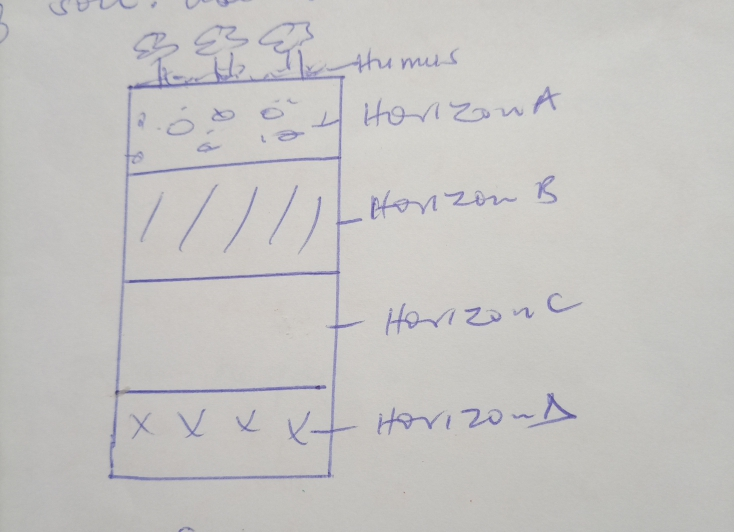 soil.
Humus
Horizon A
Horizon B
Horizon C
Horizon D